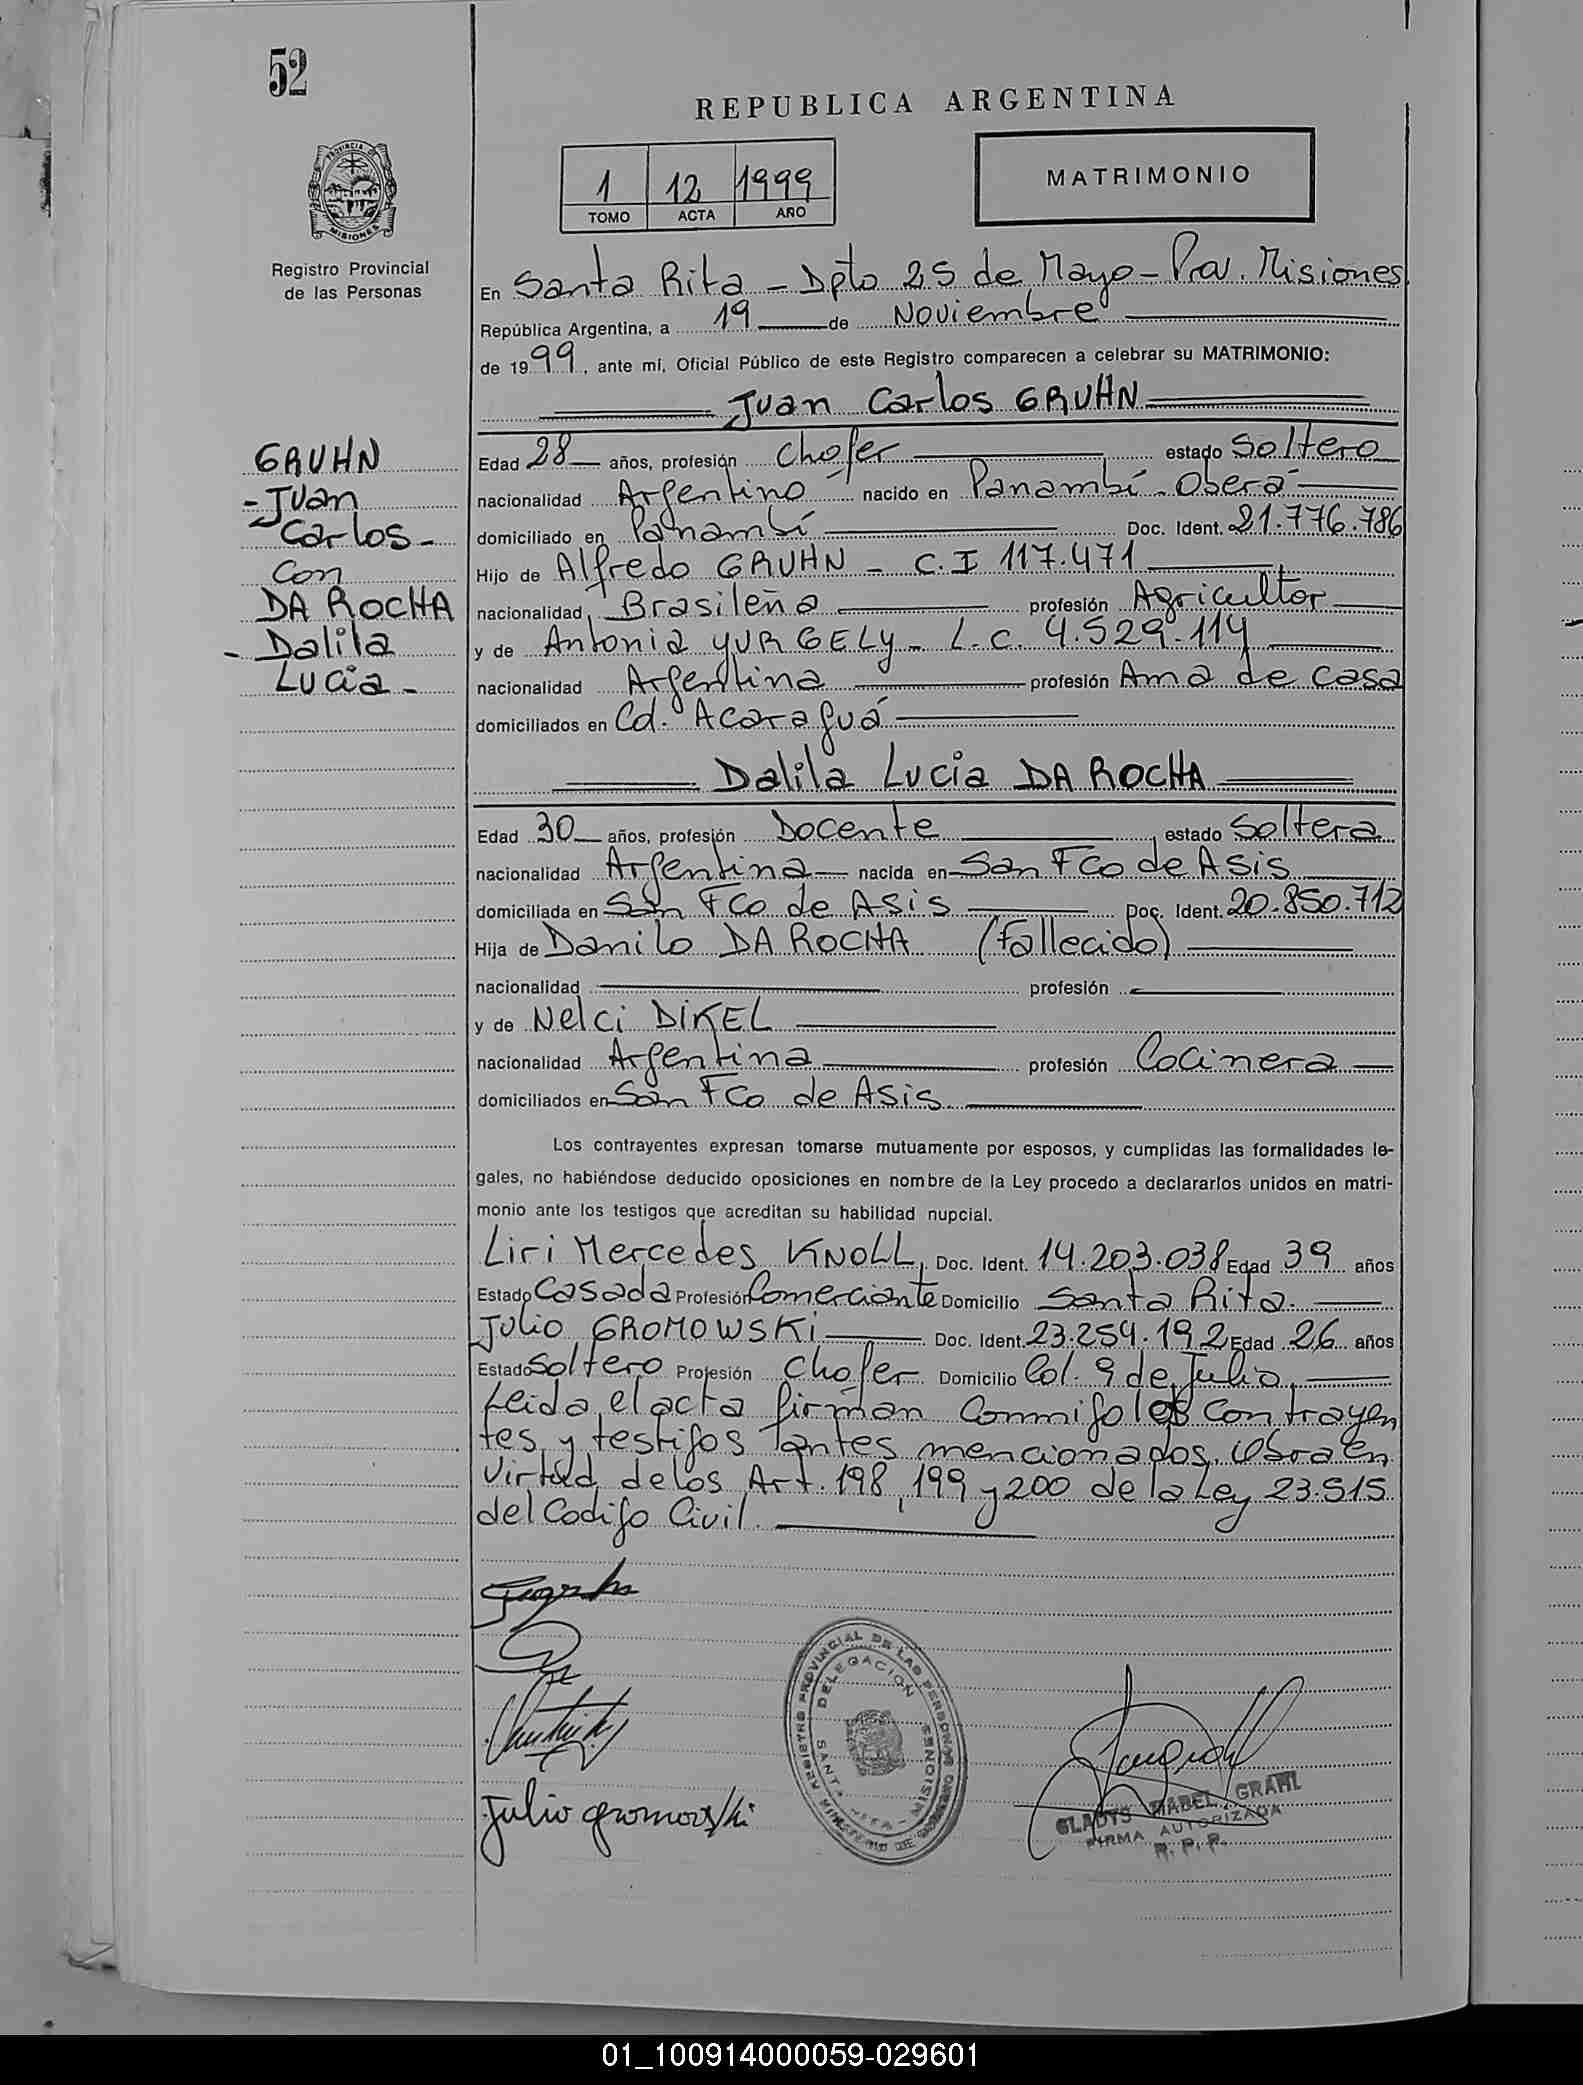 52
REPUBLICA ARGENTINA
1 12 1999
TOMO ACTA AÑO
MATRIMONIO
PROVINCIA DE
MISIONES
Registro Provincial
de las Personas
En Santa Rita - Dpto 25 de Mayo - Prov. Misiones
República Argentina, a 19 de Noviembre
de 1999, ante mí, Oficial Público de este Registro comparecen a celebrar su MATRIMONIO:
Juan Carlos GRUHN
GRUHN
- Juan
Carlos -
Con
DA ROCHA
- Dalila
Lucia -
Edad 28 años, profesión Chofer estado Soltero
nacionalidad Argentino nacido en Panambí - Oberá
domiciliado en Panambí Doc. Ident. 21.776.786
Hijo de Alfredo GRUHN - C.I 117.471
nacionalidad Brasileña profesión Agricultor
y de Antonia YURGELY - L.C. 4.529.114
nacionalidad Argentina profesión Ama de Casa
domiciliados en Cd. Acaraguá
Dalila Lucia DA ROCHA
Edad 30 años, profesión Docente estado Soltera
nacionalidad Argentina nacida en San Fco de Asis
domiciliada en San Fco de Asis Doc. Ident. 20.850.712
Hija de Danilo DA ROCHA (Fallecido)
nacionalidad profesión
y de Nelci DIKEL
nacionalidad Argentina profesión Cocinera
domiciliados en San Fco de Asis
Los contrayentes expresan tomarse mutuamente por esposos, y cumplidas las formalidades le-
gales, no habiéndose deducido oposiciones en nombre de la Ley procedo a declararlos unidos en matri-
monio ante los testigos que acreditan su habilidad nupcial.
Liri Mercedes KNOLL, Doc. Ident. 14.203.038 Edad 39 años
Estado Casada Profesión Comerciante Domicilio Santa Rita.
Julio GROMOWSKI Doc. Ident. 23.254.192 Edad 26 años
Estado Soltero Profesión Chofer Domicilio Col. 9 de Julio
Leida el acta firman Conmigo los Contrayen
tes, y testigos antes mencionados. Obra en
Virtud de los Art. 198, 199 y 200 de la Ley 23.515
del Codigo Civil.
REGISTRO PROVINCIAL DE LAS PERSONAS
DELEGACION
SANTA RITA - MISIONES
MINISTERIO DE GOBIERNO
Julio Gromowski
GLADYS MABEL GRAHL
FIRMA AUTORIZADA
R. P. P.
01_100914000059-029601